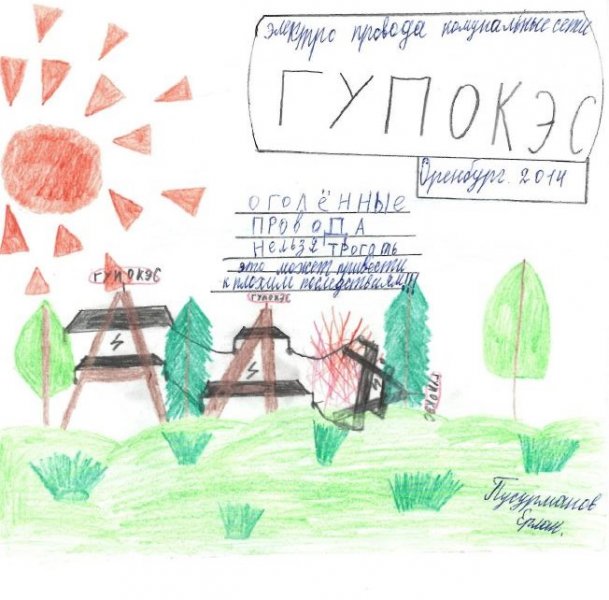 электро провода комунальные сети
ГУПОКЭС
Оренбург. 2014
ОГОЛЁННЫЕ
ПРОВОДА
НЕЛЬЗЯ ТРОГАТЬ
это может привести
к плохим последствиям!!!
ГУПОКЭС
ГУПОКЭС
ГУПОКЭС
Пусурманов
Ерлан.